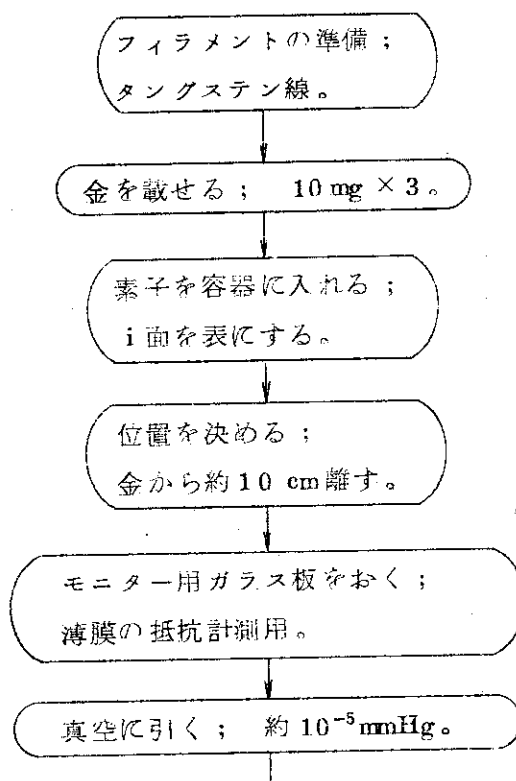 フィラメントの準備；
タングステン線。
金を載せる； 10 mg × 3。
素子を容器に入れる；
i 面を表にする。
位置を決める；
金から約 10 cm 離す。
モニター用ガラス板をおく；
薄膜の抵抗計測用。
真空に引く； 約 10⁻⁵ mmHg。